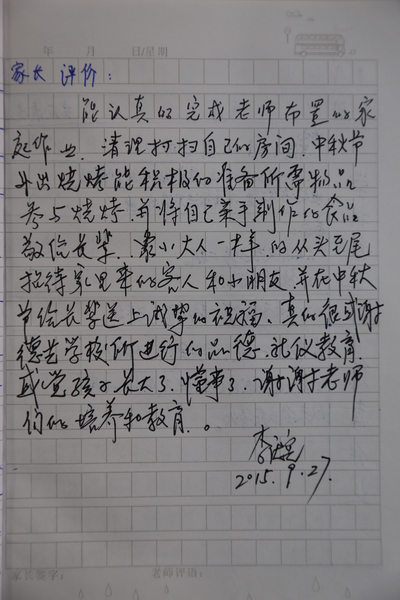 年 月 日/星期
家长评价：
能认真的完成老师布置的家
庭作业、清理打扫自己的房间、中秋节
外出烧烤能积极的准备所需物品
参与烧烤、并将自己亲手制作的食品
敬给长辈、像小大人一样、的从头至尾
招待家里来的客人和小朋友、并在中秋
节给长辈送上诚挚的祝福、真的很感谢
德艺学校所进行的品德、礼仪教育、
感觉孩子长大了、懂事了、谢谢老师
们的培养和教育。
李
2015.9.27.
家长签字： 老师评语：